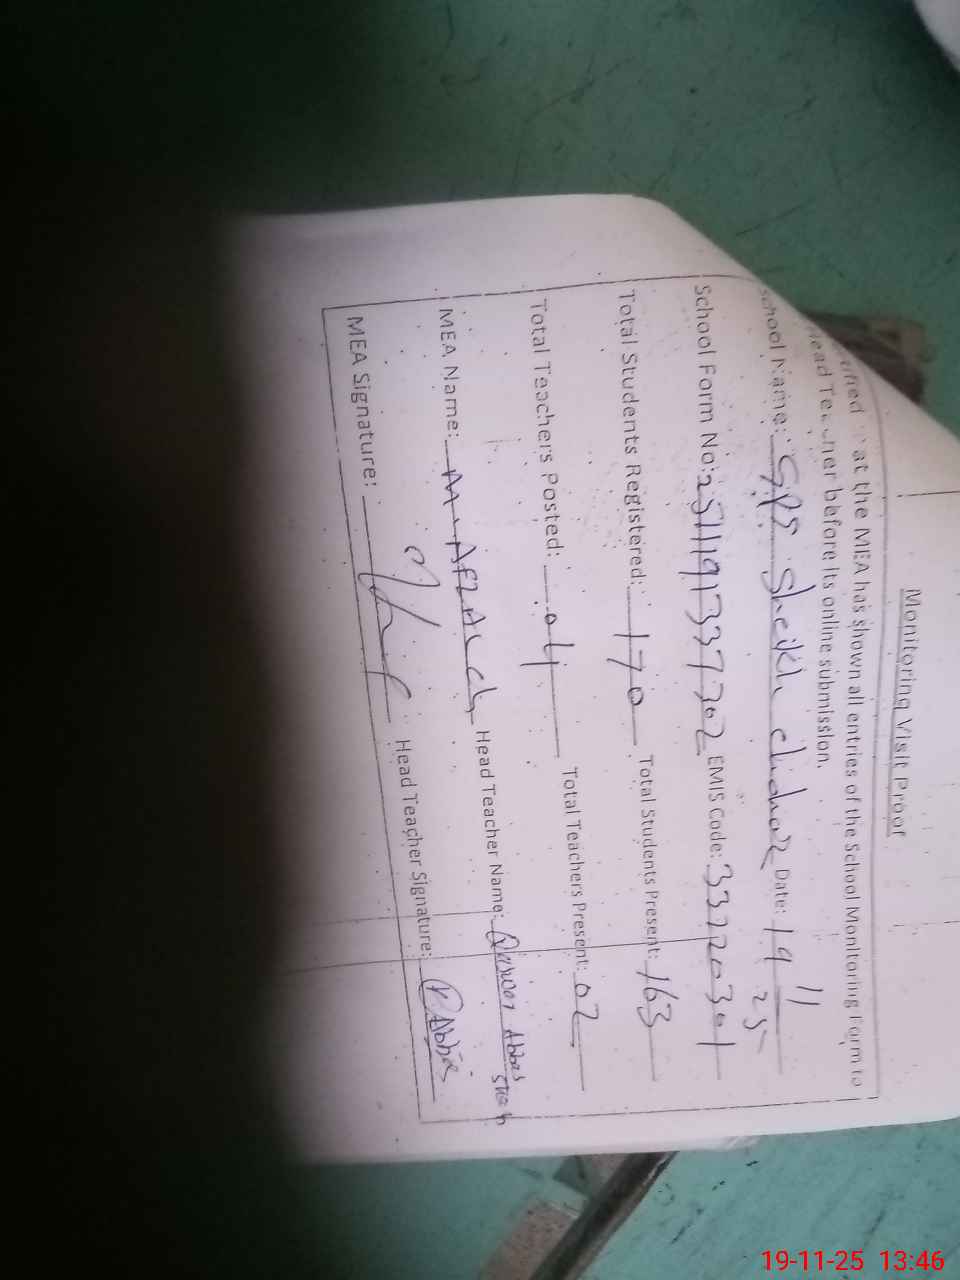 Monitoring Visit Proof
at the MEA has shown all entries of the School Monitoring Form to
Head Teacher before its online submission.
School Name: GPS Sheikh Date: 19 11 25
School Form No: EMIS Code: 33220301
Total Students Registered: 170 Total Students Present: 163
Total Teachers Posted: 04 Total Teachers Present: 02
MEA Name: M. Head Teacher Name: Abbas
MEA Signature: Head Teacher Signature: Abbas
19-11-25 13:46